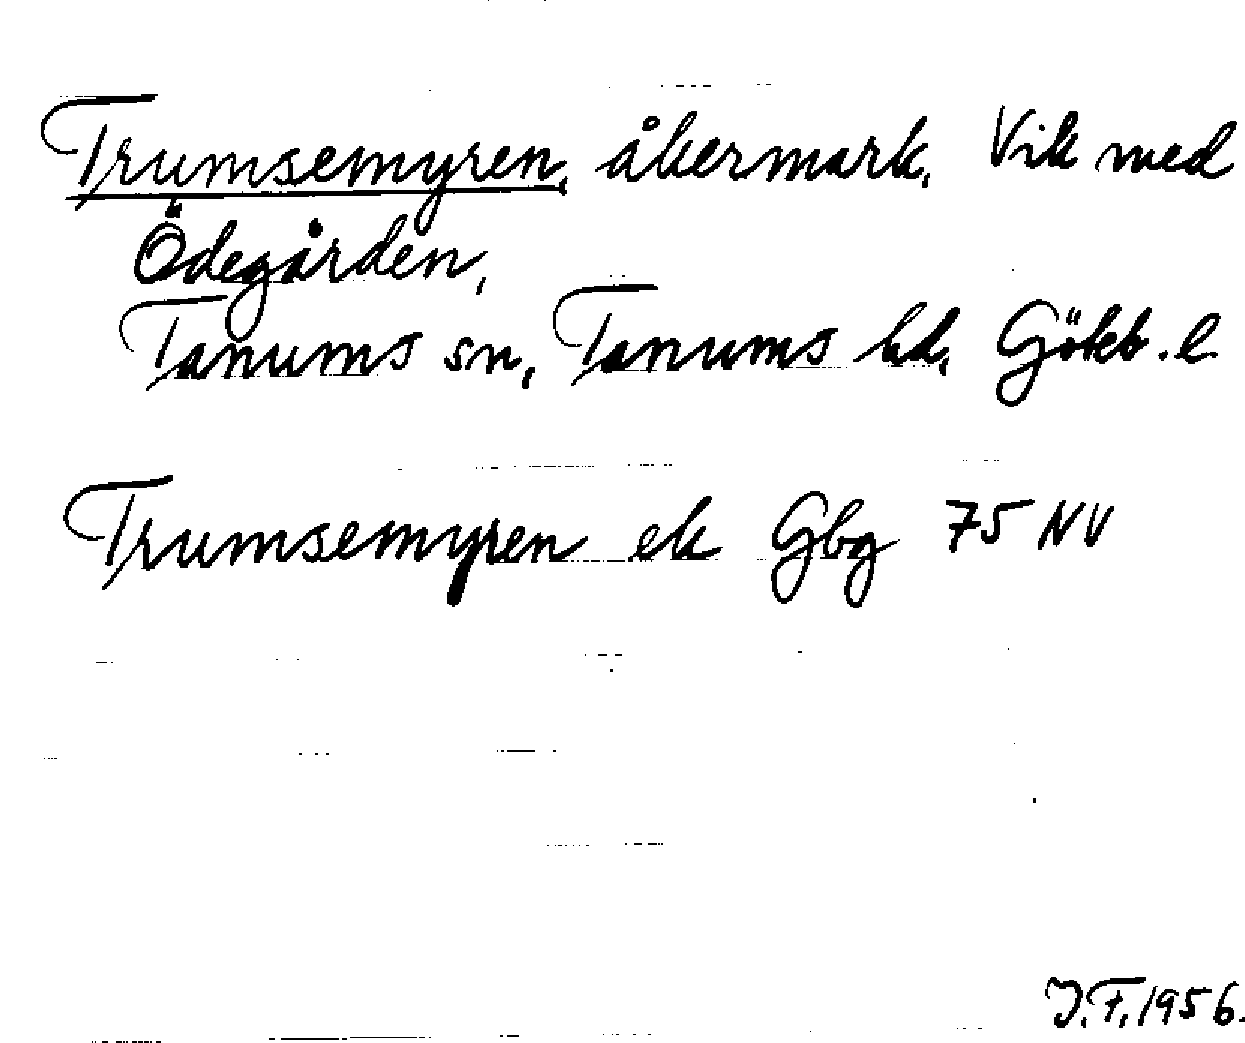 Trumsemyren, åkermark, Vik med
Ödegården,
Tanums sn, Tanums hd, Gökb. l
Trumsemyren ek Gbg 75 NV
J.F. 1956.